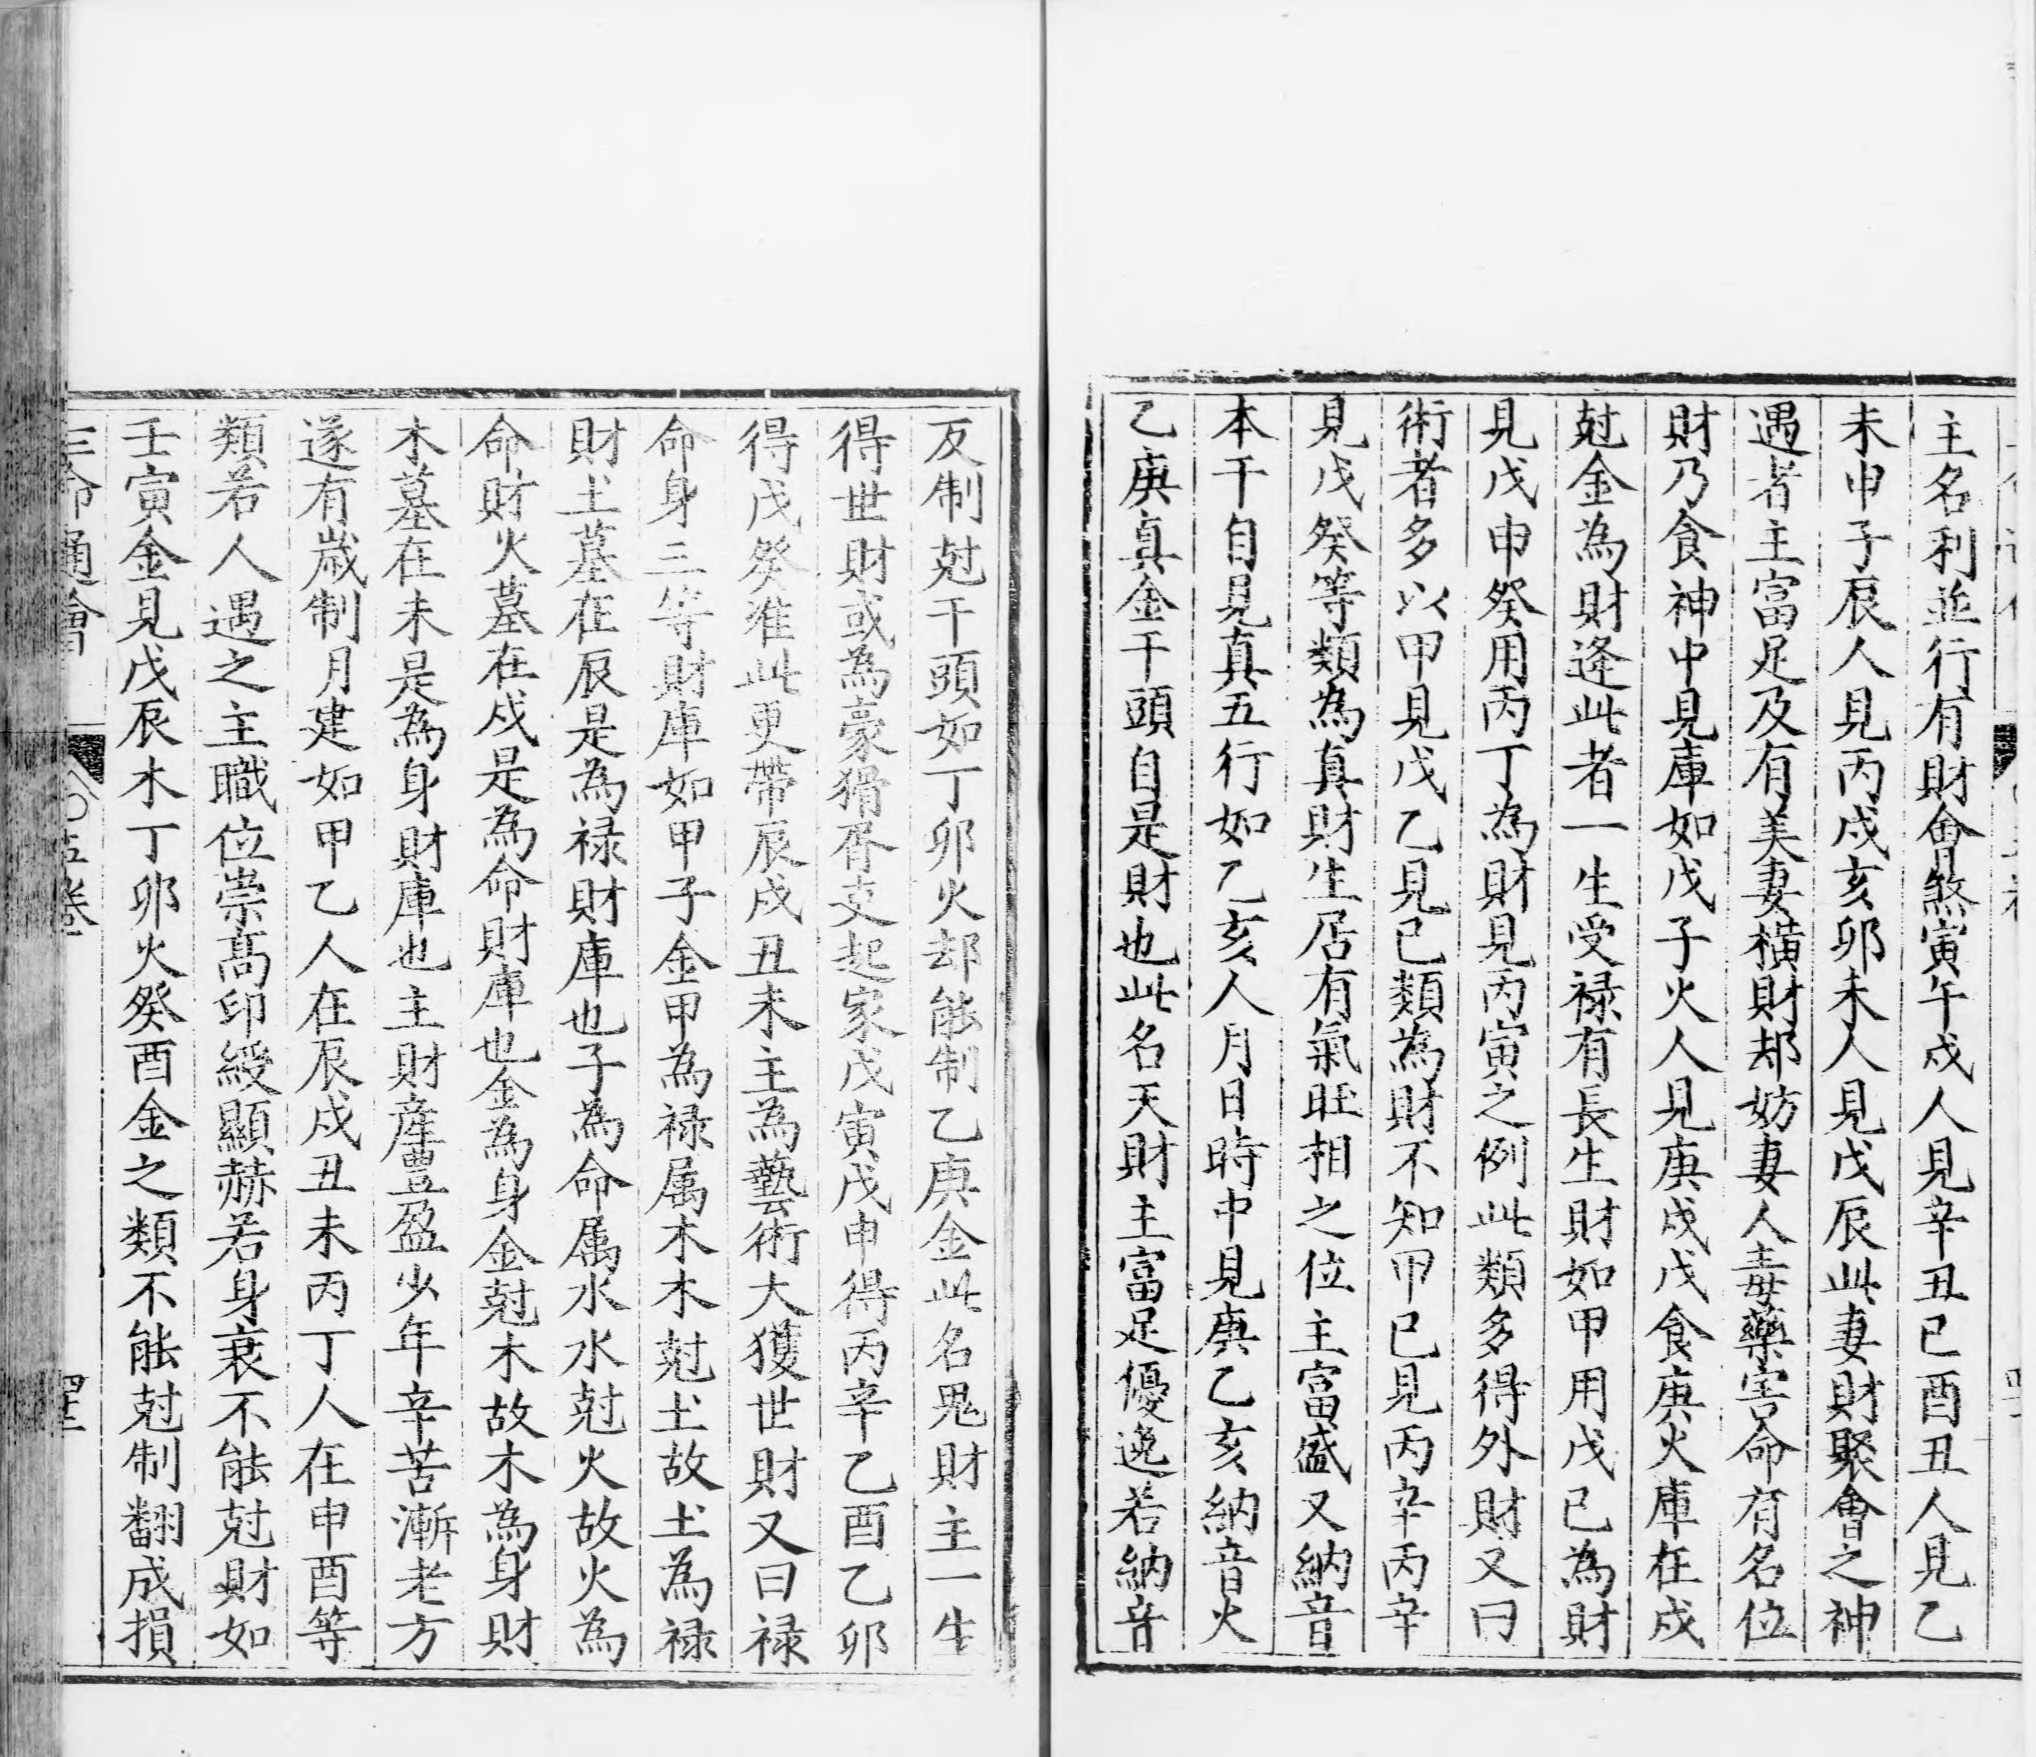 主名利並行有財會煞寅午戌人見辛丑巳酉丑人見乙
未申子辰人見丙戌亥卯未人見戊辰此妻財聚會之神
遇者主富足及有美妻橫財却妨妻人毒藥害命有名位
財乃食神中見庫如戊子火人見庚戌戊食庚火庫在戌
尅金為財逢此者一生受禄有長生財如甲用戊己為財
見戊申癸用丙丁為財見丙寅之例此類多得外財又曰
術者多以甲見戊乙見己類為財不知甲己見丙辛丙辛
見戊癸等類為真財生居有氣旺相之位主富盛又納音
本干自見真五行如乙亥人月日時中見庚乙亥納音火
乙庚真金干頭自是財也此名天財主富足優逸若納音
反制尅干頭如丁卯火却能制乙庚金此名鬼財主一生
得世財或為豪猾胥吏起家戊寅戊申得丙辛乙酉乙卯
得戊癸准此更帶辰戌丑未主為藝術大獲世財又曰禄
命身三等財庫如甲子金甲為禄属木木尅土故土為禄
財土墓在辰是為禄財庫也子為命属水水尅火故火為
命財火墓在戌是為命財庫也金為身金尅木故木為身財
木墓在未是為身財庫也主財産豊盈少年辛苦漸老方
遂有歲制月建如甲乙人在辰戌丑未丙丁人在申酉等
類若人遇之主職位崇高印綬顯赫若身衰不能尅財如
壬寅金見戊辰木丁卯火癸酉金之類不能尅制翻成損
三命通會 五卷